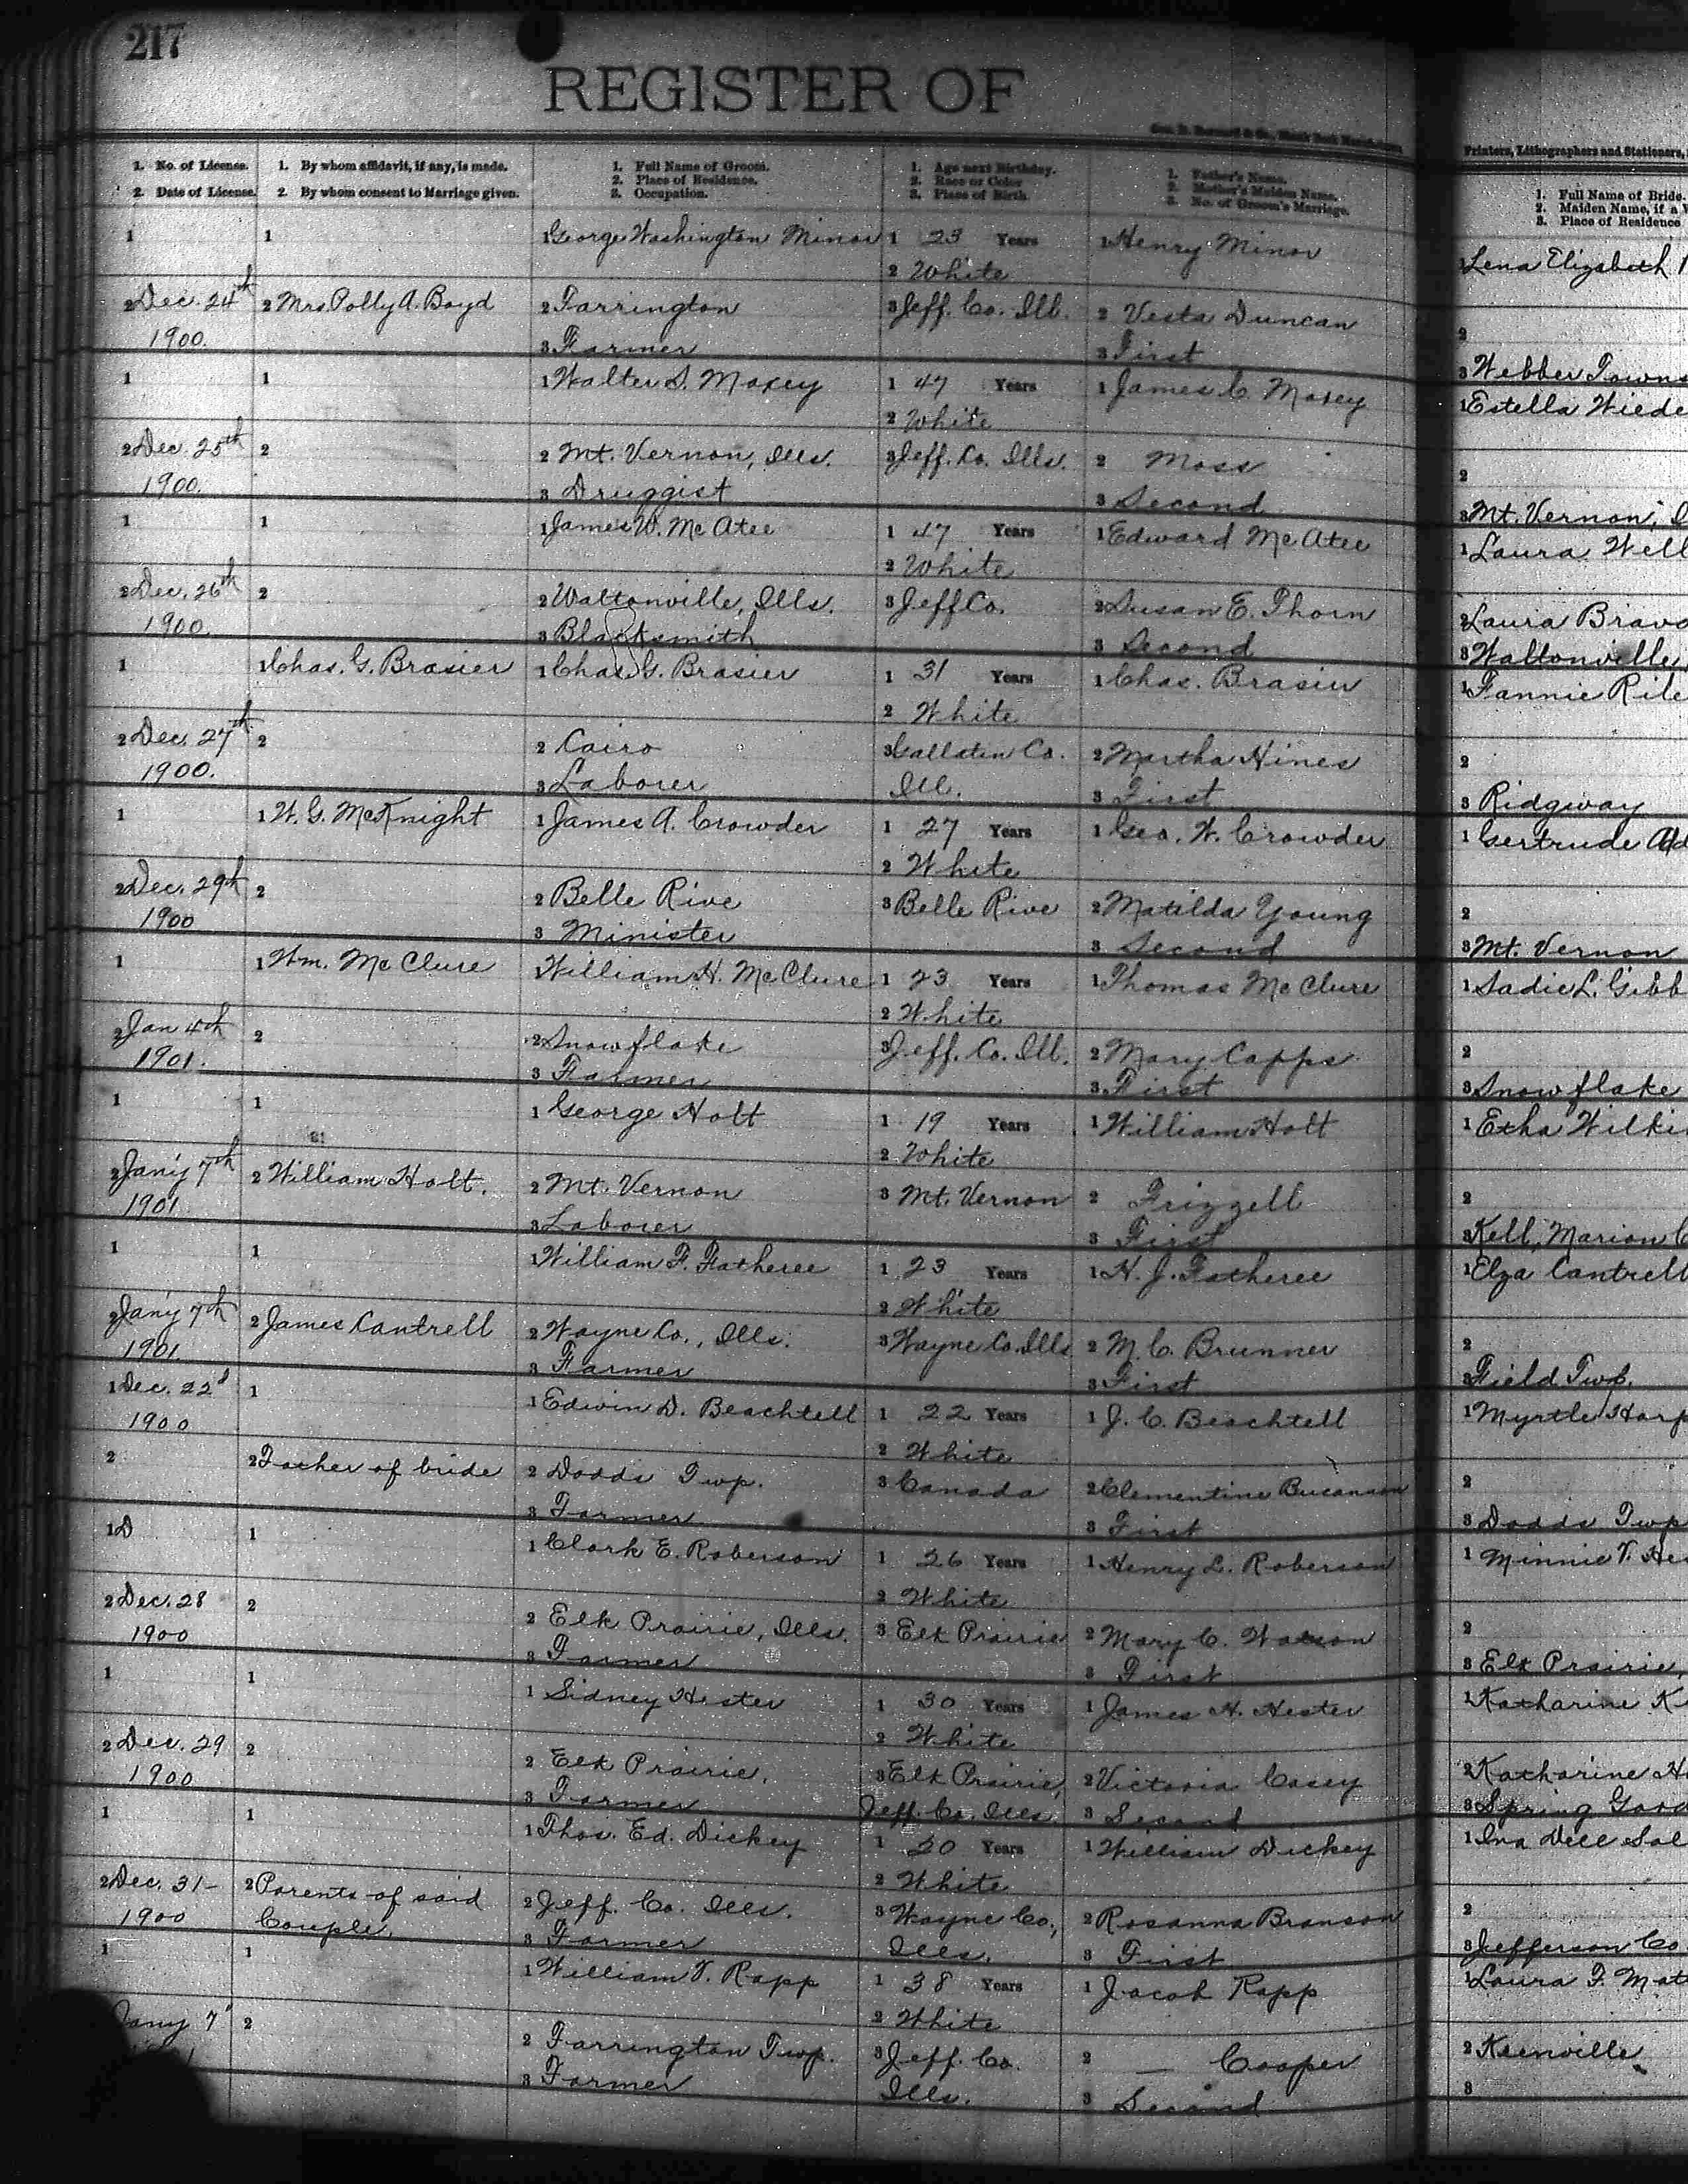 217
REGISTER OF
1. No. of License.
2. Date of License.
1. By whom affidavit, if any, is made.
2. By whom consent to Marriage given.
1. Full Name of Groom.
2. Place of Residence.
3. Occupation.
1. Age next Birthday.
2. Race or Color
3. Place of Birth.
1. Father's Name.
2. Mother's Maiden Name.
3. No. of Groom's Marriage.
Printers, Lithographers and Stationers,
1. Full Name of Bride.
2. Maiden Name, if a W
3. Place of Residence
1
2 Dec. 24th
1900.
1
2 Mrs. Polly A. Boyd
1 George Washington Minor
2 Farrington
3 Farmer
1 23 Years
2 White
3 Jeff. Co. Ill.
1 Henry Minor
2 Vesta Duncan
3 First
1 Lena Elizabeth
2
3 Webber Towns
1
2 Dec. 25th
1900.
1
2
1 Walter S. Maxey
2 Mt. Vernon, Ills.
3 Druggist
1 47 Years
2 White
3 Jeff. Co. Ills.
1 James C. Maxey
2 Moss
3 Second
1 Estella Wiede
2
3 Mt. Vernon,
1
2 Dec. 26th
1900.
1
2
1 James W. McAtee
2 Waltonville, Ills.
3 Blacksmith
1 47 Years
2 White
3 Jeff Co.
1 Edward McAtee
2 Susan E. Thorn
3 Second
1 Laura Well
2 Laura Bravo
3 Waltonville,
1
2 Dec. 27th
1900.
1 Chas. G. Brasier
2
1 Chas. G. Brasier
2 Cairo
3 Laborer
1 31 Years
2 White
3 Gallatin Co.
Ill.
1 Chas. Brasier
2 Martha Hines
3 First
1 Fannie Rile
2
3 Ridgway
1
2 Dec. 29th
1900
1 W. G. McKnight
2
1 James A. Crowder
2 Belle Rive
3 Minister
1 27 Years
2 White
3 Belle Rive
1 Geo. W. Crowder
2 Matilda Young
3 Second
1 Gertrude Ad
2
3 Mt. Vernon
1
2 Jan 4th
1901.
1 Wm. McClure
2
1 William H. McClure
2 Snowflake
3 Farmer
1 23 Years
2 White
3 Jeff. Co. Ill.
1 Thomas McClure
2 Mary Capps
3 First
1 Sadie L. Gibb
2
3 Snowflake
1
2 Jan'y 7th
1901
1
2 William Holt.
1 George Holt
2 Mt. Vernon
3 Laborer
1 19 Years
2 White
3 Mt. Vernon
1 William Holt
2 Frizzell
3 First
1 Etha Wilki
2
3 Kell, Marion C
1
2 Jan'y 7th
1901.
1
2 James Cantrell
1 William F. Fatheree
2 Wayne Co., Ills.
3 Farmer
1 23 Years
2 White
3 Wayne Co. Ills
1 H. J. Fatheree
2 M. C. Brunner
3 First
1 Elza Cantrell
2
3 Field Twp.
1 Dec. 22d
1900
2
1
2 Father of bride
1 Edwin D. Beachtell
2 Dodds Twp.
3 Farmer
1 22 Years
2 White
3 Canada
1 J. C. Beachtell
2 Clementine Bucanaan
3 First
1 Myrtle Harp
2
3 Dodds Twp
1 D
2 Dec. 28
1900
1
2
1 Clark E. Roberson
2 Elk Prairie, Ills.
3 Farmer
1 26 Years
2 White
3 Elk Prairie
1 Henry L. Roberson
2 Mary C. Watson
3 First
1 Minnie V. Hes
2
3 Elk Prairie,
1
2 Dec. 29
1900
1
2
1 Sidney Hester
2 Elk Prairie,
3 Farmer
1 30 Years
2 White
3 Elk Prairie,
Jeff. Co. Ills.
1 James H. Hester
2 Victoria Casey
3 Second
1 Katharine K
2 Katharine H
3 Spring Gard
1
2 Dec. 31-
1900
1
2 Parents of said
Couple.
1 Thos. Ed. Dickey
2 Jeff. Co. Ills.
3 Farmer
1 20 Years
2 White
3 Wayne Co,
Ills.
1 William Dickey
2 Rosanna Branson
3 First
1 Ina Dell Sal
2
3 Jefferson Co
1
Jany 7'
1
2
1 William T. Rapp
2 Farrington Twp.
3 Farmer
1 38 Years
2 White
3 Jeff. Co.
Ills.
1 Jacob Rapp
2 — Cooper
3 Second
1 Laura F. Mat
2 Keenville
3